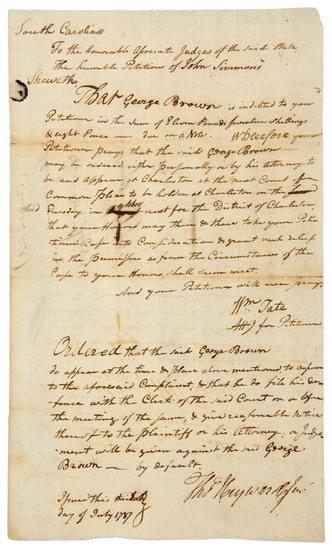 South Carolina
To the Honorable Associate Judges of the said State
The humble Petition of John Simmons
Sheweth
That George Brown is indebted to your
Petitioner in the Sum of Eleven Pounds seventeen Shillings
& eight Pence — due on a Note. Wherefore your
Petitioner prays that the said George Brown
may be ordered either personally or by his Attorney to
be and appear at Charleston at the next Court of
Common Pleas to be holden at Charleston on the
third Tuesday in October next for the District of Charleston,
that your Honors may then & there take your Peti-
tioners Case into Consideration & grant such relief
in the Premisses as from the Circumstances of the
Case to your Honors, shall seem meet.
And your Petitioner will ever pray &c
Wm. Tate
Atty for Petitioner
Ordered that the said George Brown
do appear at the time & place above mentioned to answer
to the aforesaid Complaint, & that he do file his de-
fence with the Clerk of the said Court on or before
the meeting of the same, & give reasonable notice
thereof to the Plaintiff or his Attorney, or Judge-
ment will be given against the said George
Brown — by default.
Thos Heyward Junr
Issued this the
day of July 1787